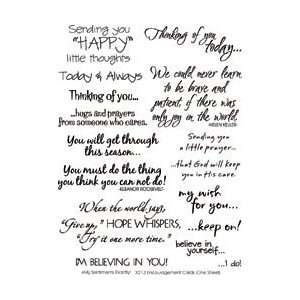 Sending you
"HAPPY"
little thoughts
Thinking of you
today...
Today & Always
We could never learn
to be brave and
patient, if there was
only joy in the world.
HELEN KELLER
Thinking of you...
...hugs and prayers
from someone who cares.
You will get through
this season...
Sending you
a little prayer...
...that God will keep
you in His care.
You must do the thing
you think you can not do!
ELEANOR ROOSEVELT
my wish
for you...
When the world says,
"Give up," HOPE WHISPERS,
"Try it one more time."
...keep on!
believe in
yourself...
IM BELIEVING IN YOU!
...I do!
My Sentiments Exactly! X213 Encouragement Cards (One Sheet)